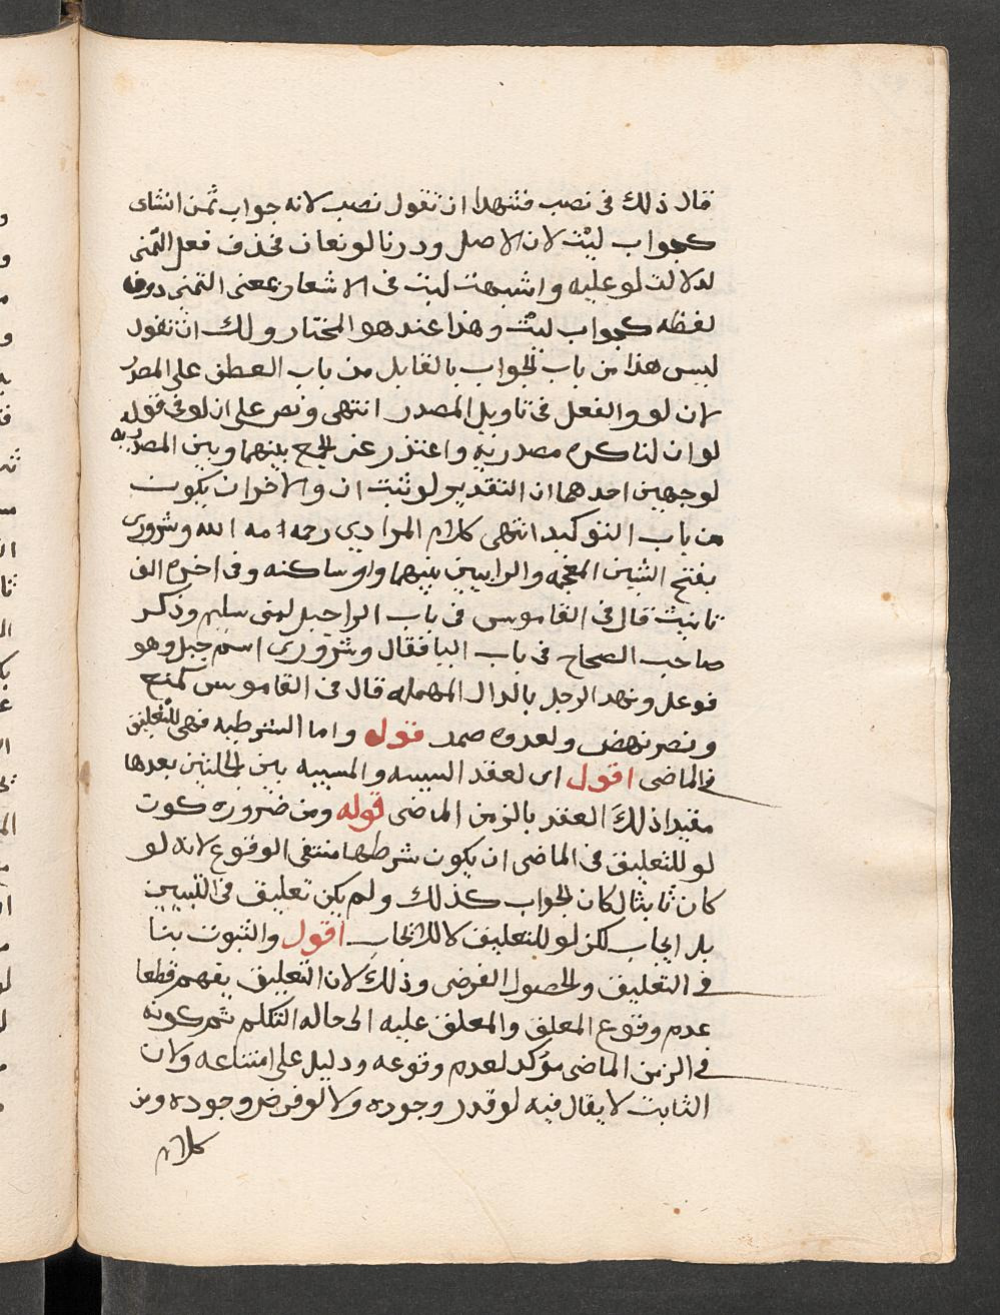 قال ذلك فى نصب فننهدا ان تقول نصب لانه جواب تمن انشاى
كجواب ليت لان الاصل وددنا لو نعان فحذف فعل التمنى
لدلالت لو عليه واشبهت ليت فى الاشعار بمعنى التمنى دون
لفظه كجواب ليت وهذا عندهو المختار ولك ان تقول
ليس هذا من باب الجواب بالفابل من باب العطف على المصدر
لان لو والفعل فى تاويل المصدر انتهى ونص على ان لو فى قوله
لو ان لنا كره مصدريه واعتذر عن الجمع بينهما وبين المصدريه
لوجهين احدهما ان التقدير لو ثبت ان والاخر ان يكون
من باب التوكيد انتهى كلام المرادي رحمه الله وشرورى
بفتح الشين المعجمه والرايين بينهما واو ساكنه وفى اخره الف
تانيث قال فى القاموس فى باب الرا جبل لبنى سليم وذكر
صاحب الصحاح فى باب اليا فقال وشرورى اسم جبل وهو
فوعل ونهد الرجل بالدال المهمله قال فى القاموس كمنع
ونصر نهض ولعدوه صمد قوله واما الشرطيه فهى للتعليق
فى الماضى اقول اى لعقد السببيه والمسببيه بين الجملتين بعدها
مقيدا ذلك العقد بالزمن الماضى قوله ومن ضروره كون
لو للتعليق فى الماضى ان يكون شرطها منتفى الوقوع لانه لو
كان ثابتا لكان الجواب كذلك ولم يكن تعليق فى التبيين
بل ايجاب لكن لو للتعليق لا للايجاب اقول والثبوت بنا
فى التعليق والحصول الفرضى وذلك لان التعليق يفهم قطعا
عدم وقوع المعلق والمعلق عليه الى حاله التكلم ثم كونه
فى الزمن الماضى موكد لعدم وقوعه ودليل على امتناعه ولان
الثابت لا يقال فيه لو قدر وجوده ولا لو فرض وجوده ومن
كلام